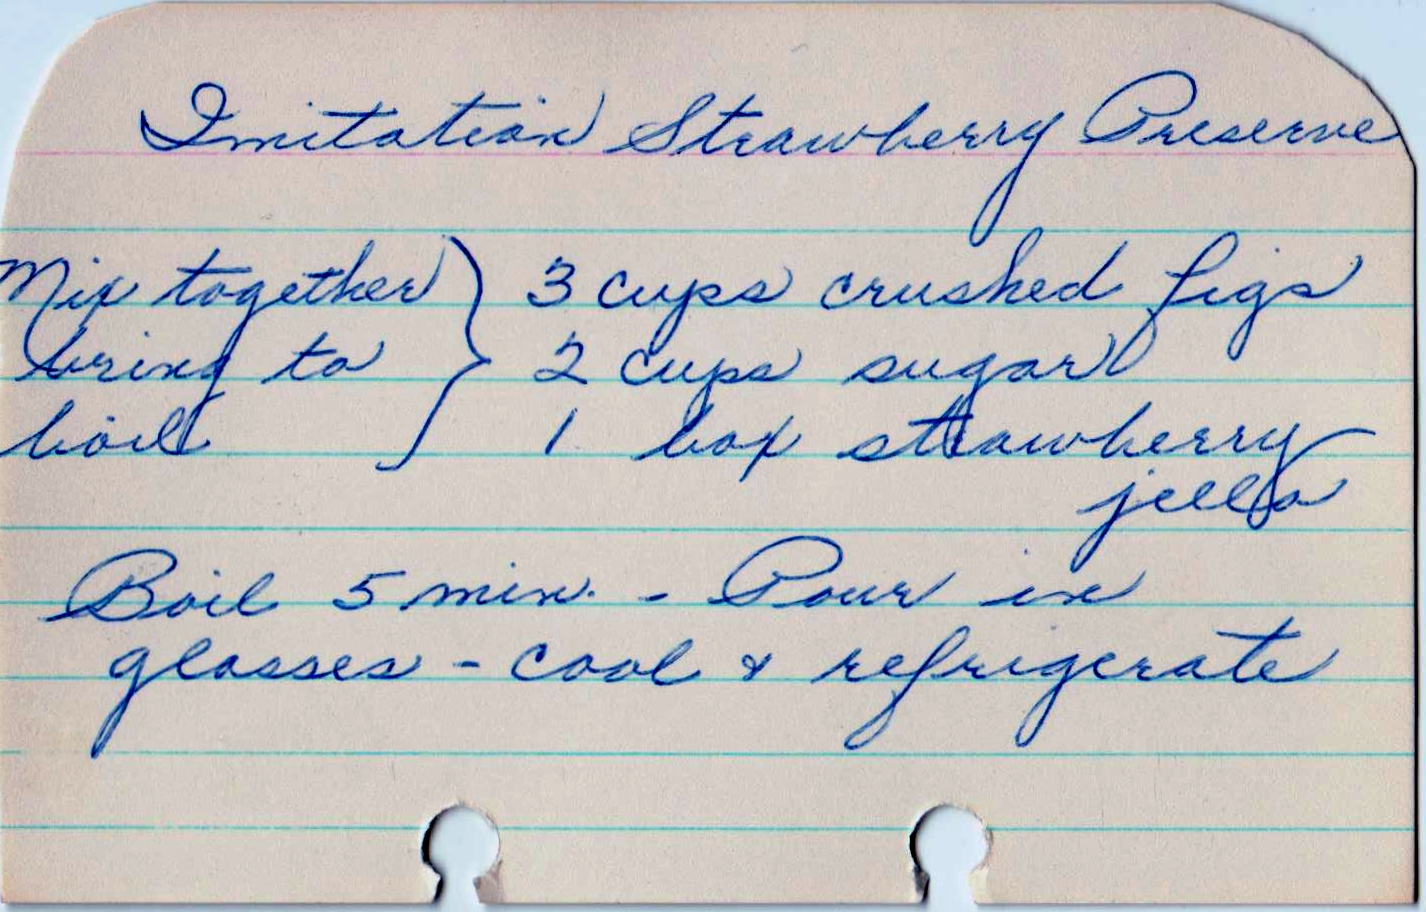 Imitation Strawberry Preserve
Mix together } 3 cups crushed figs
bring to 2 cups sugar
boil 1 box strawberry
jello
Boil 5 min. - Pour in
glasses - cool & refrigerate